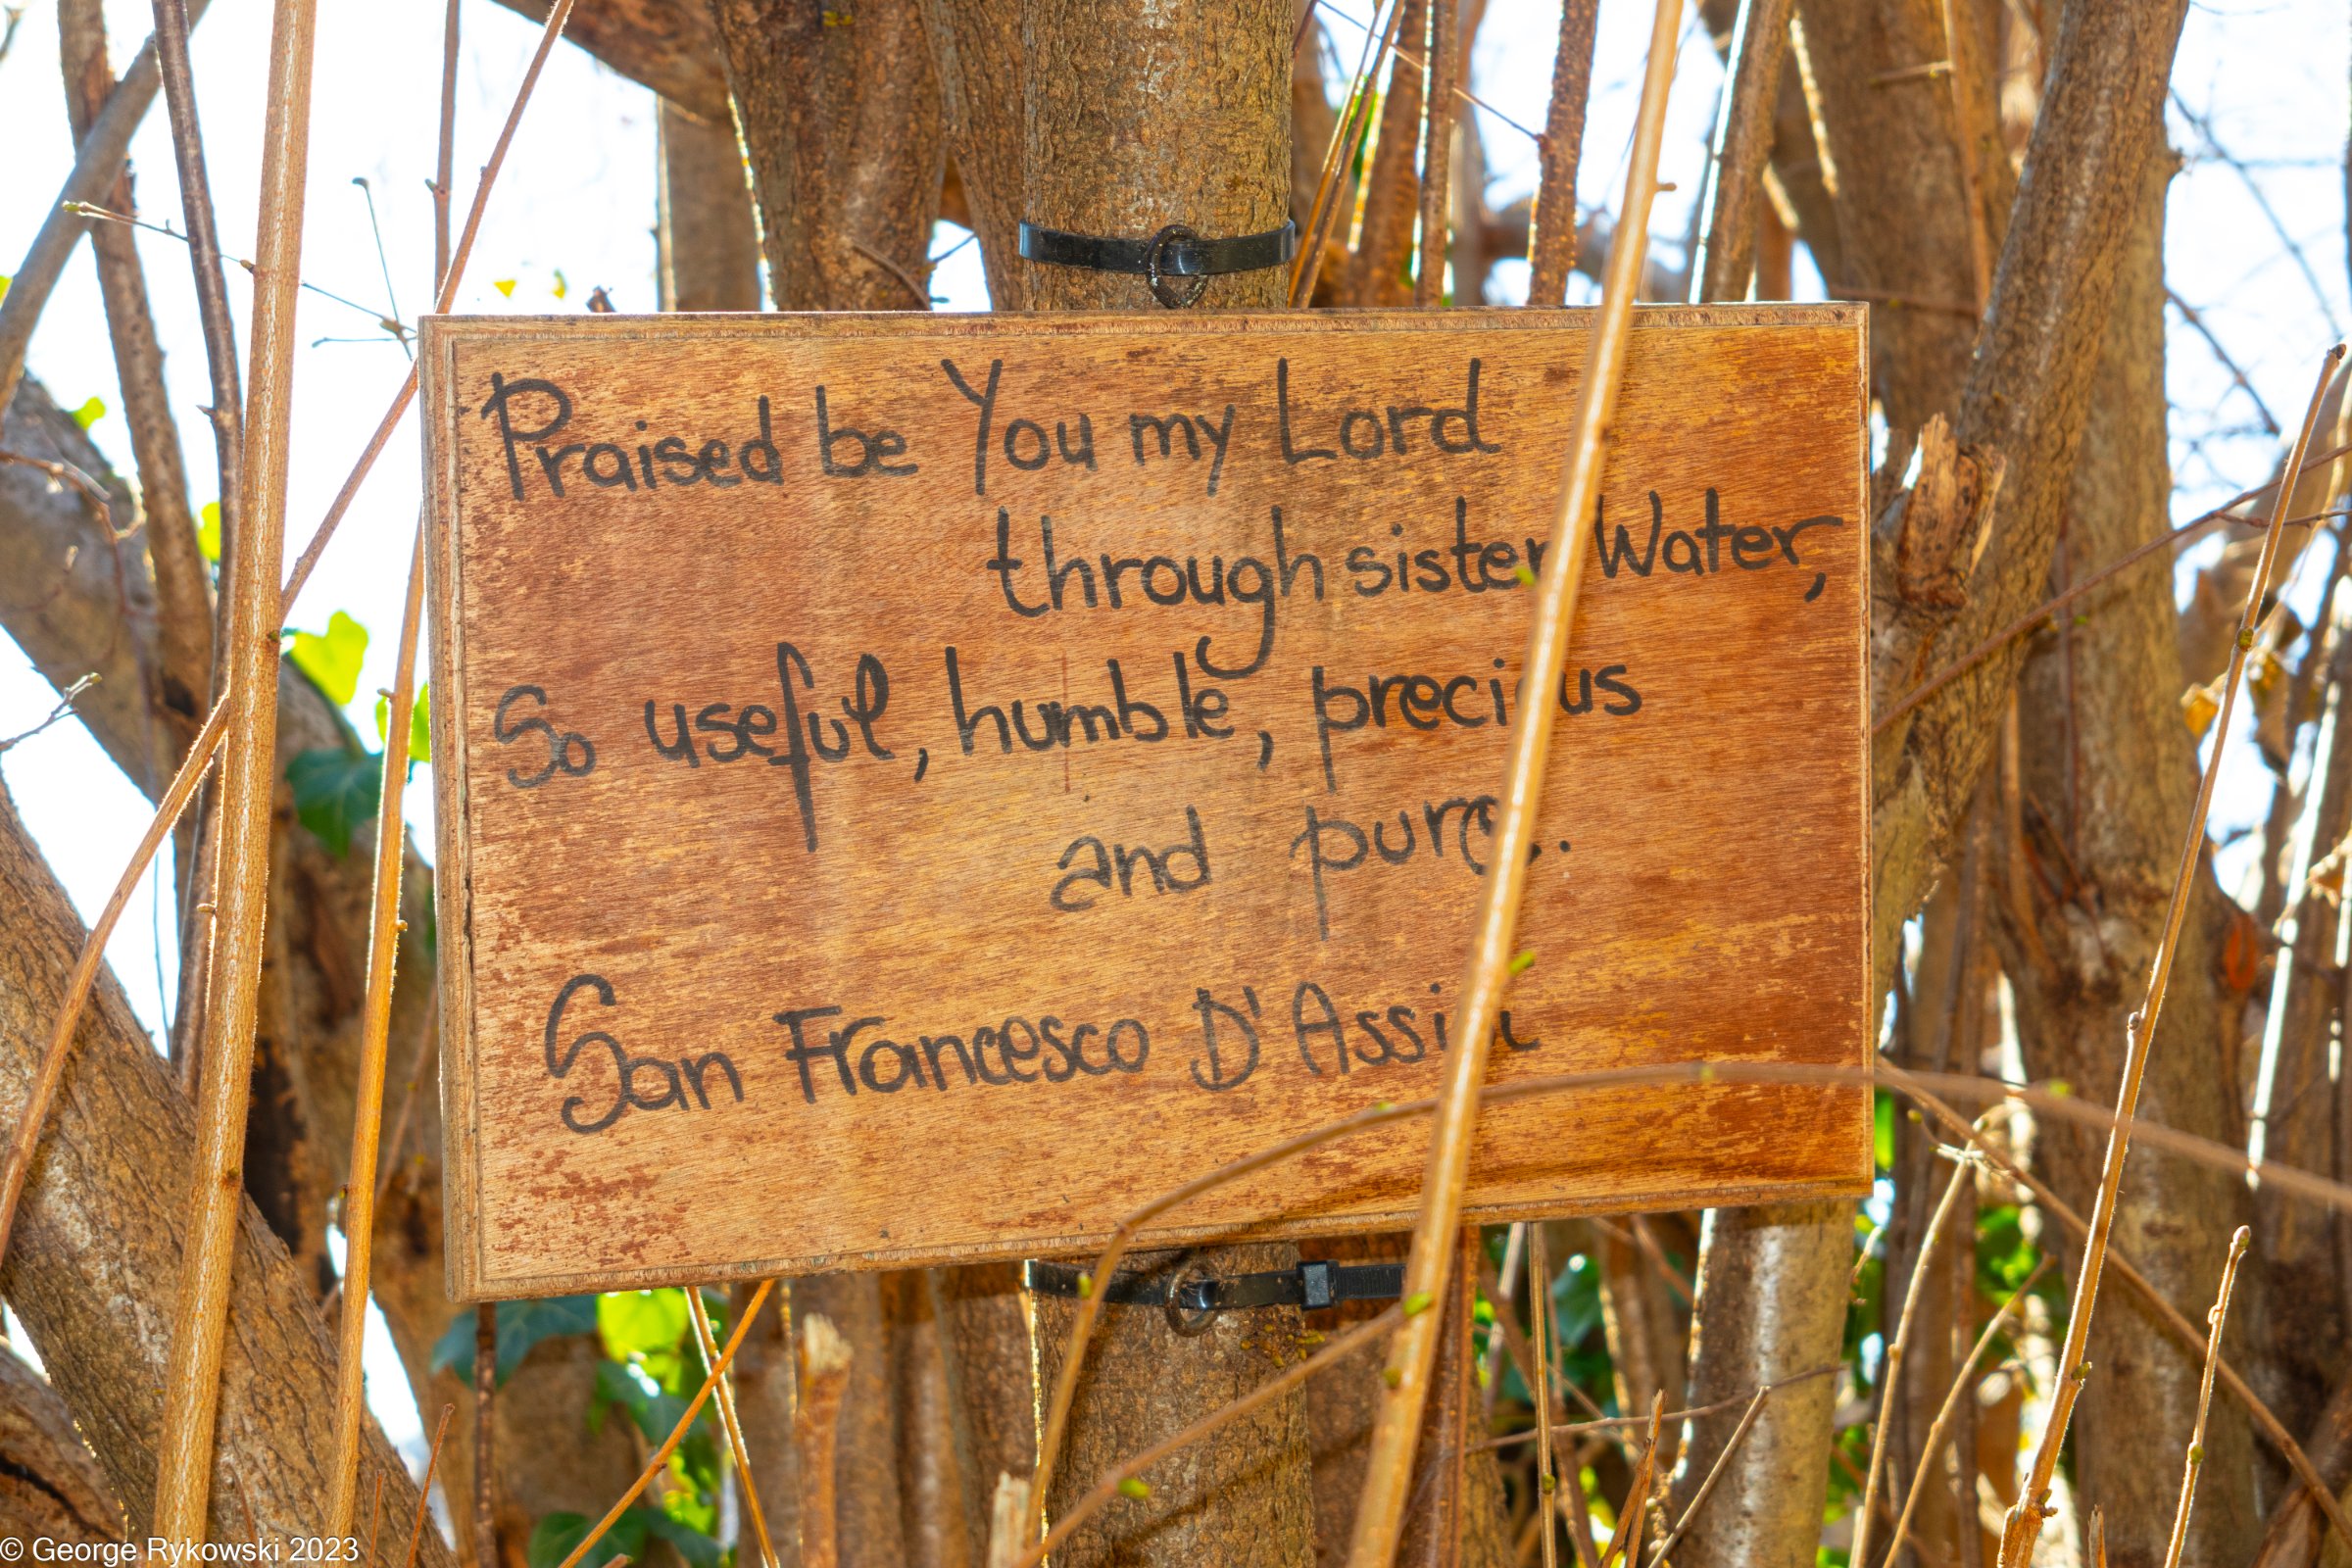 Praised be You my Lord
through sister Water,
So useful, humble, precious
and pure..
San Francesco D'Assisi
© George Rykowski 2023